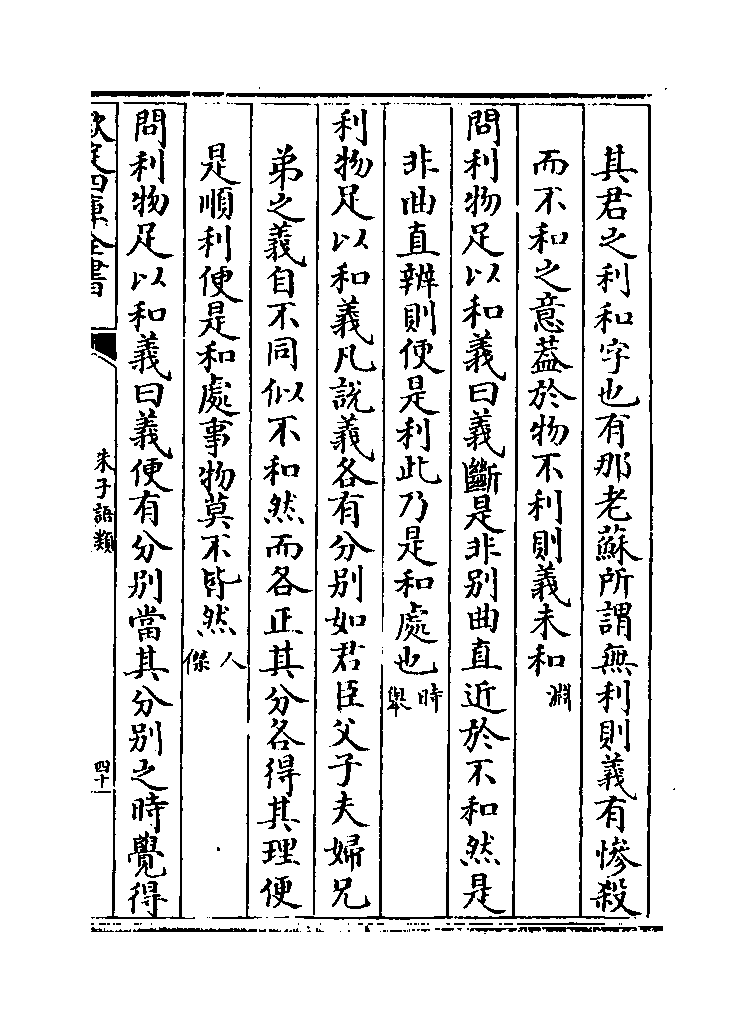 其君之利和字也有那老蘇所謂無利則義有慘殺
而不和之意蓋於物不利則義未和淵
問利物足以和義曰義斷是非别曲直近於不和然是
非曲直辨則便是利此乃是和處也時舉
利物足以和義凡説義各有分别如君臣父子夫婦兄
弟之義自不同似不和然而各正其分各得其理便
是順利便是和處事物莫不皆然人傑
問利物足以和義曰義便有分别當其分别之時覺得
欽定四庫全書
朱子語類
四十一